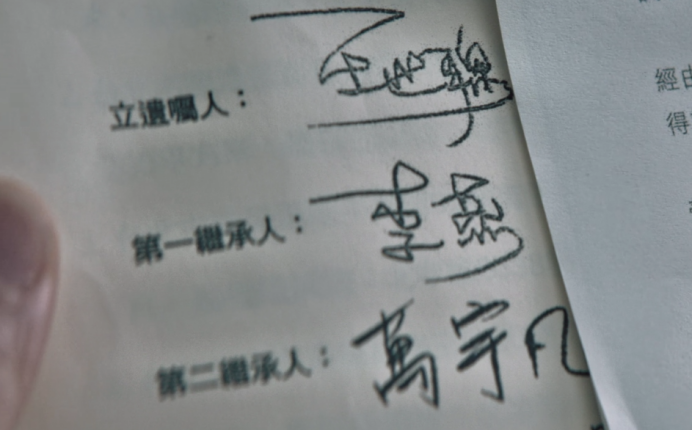 立遺囑人：
第一繼承人：李燕
第二繼承人：萬宇凡
經由
得